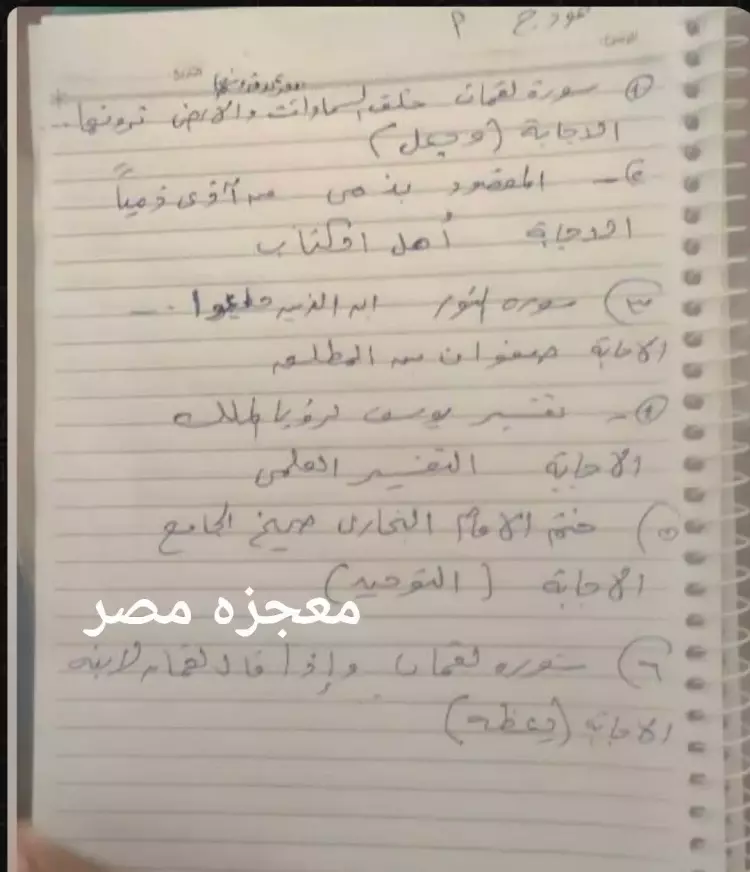 نموذج م
① سورة لقمان خلق السماوات والأرض ترونها...
الاجابة (وجعل)
② - المقصود بذمي من آذى ذمياً
الاجابة أهل الكتاب
③ سوره النور ان الذين ...
الاجابة صفوان بن المطلب
④ - تفسير يوسف لرؤيا الملك
الاجابة التفسير العلمي
⑤ ختم الامام البخارى صحيح الجامع
الاجابة (التوحيد)
معجزه مصر
⑥ سوره لقمان وإذا قال لقمان لابنه
الاجابة (يعظه)